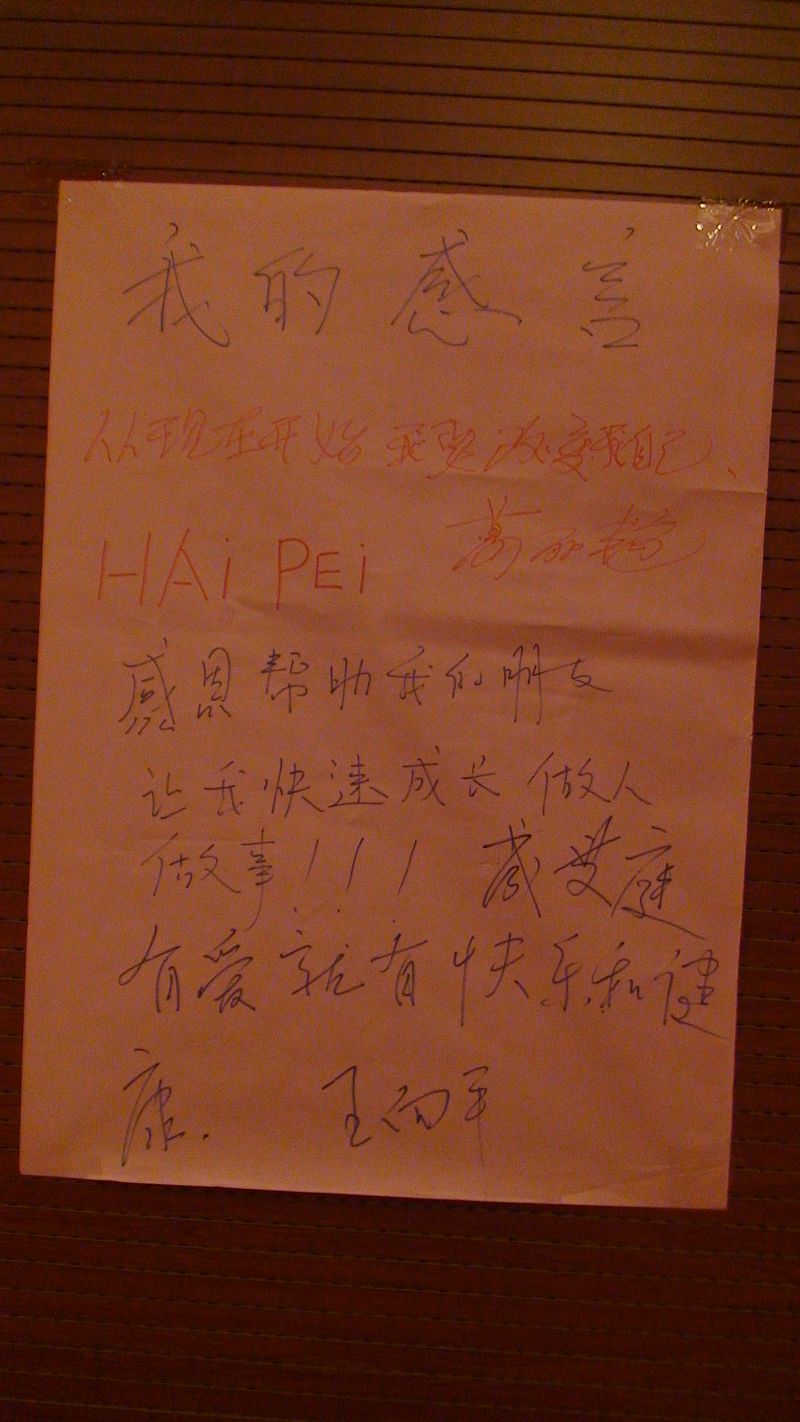 我的感言
从现在开始我要改变我自己、
HAi PEi
感恩帮助我的朋友
让我快速成长做人
做事!!!
有爱就有快乐和健
康. 王向平